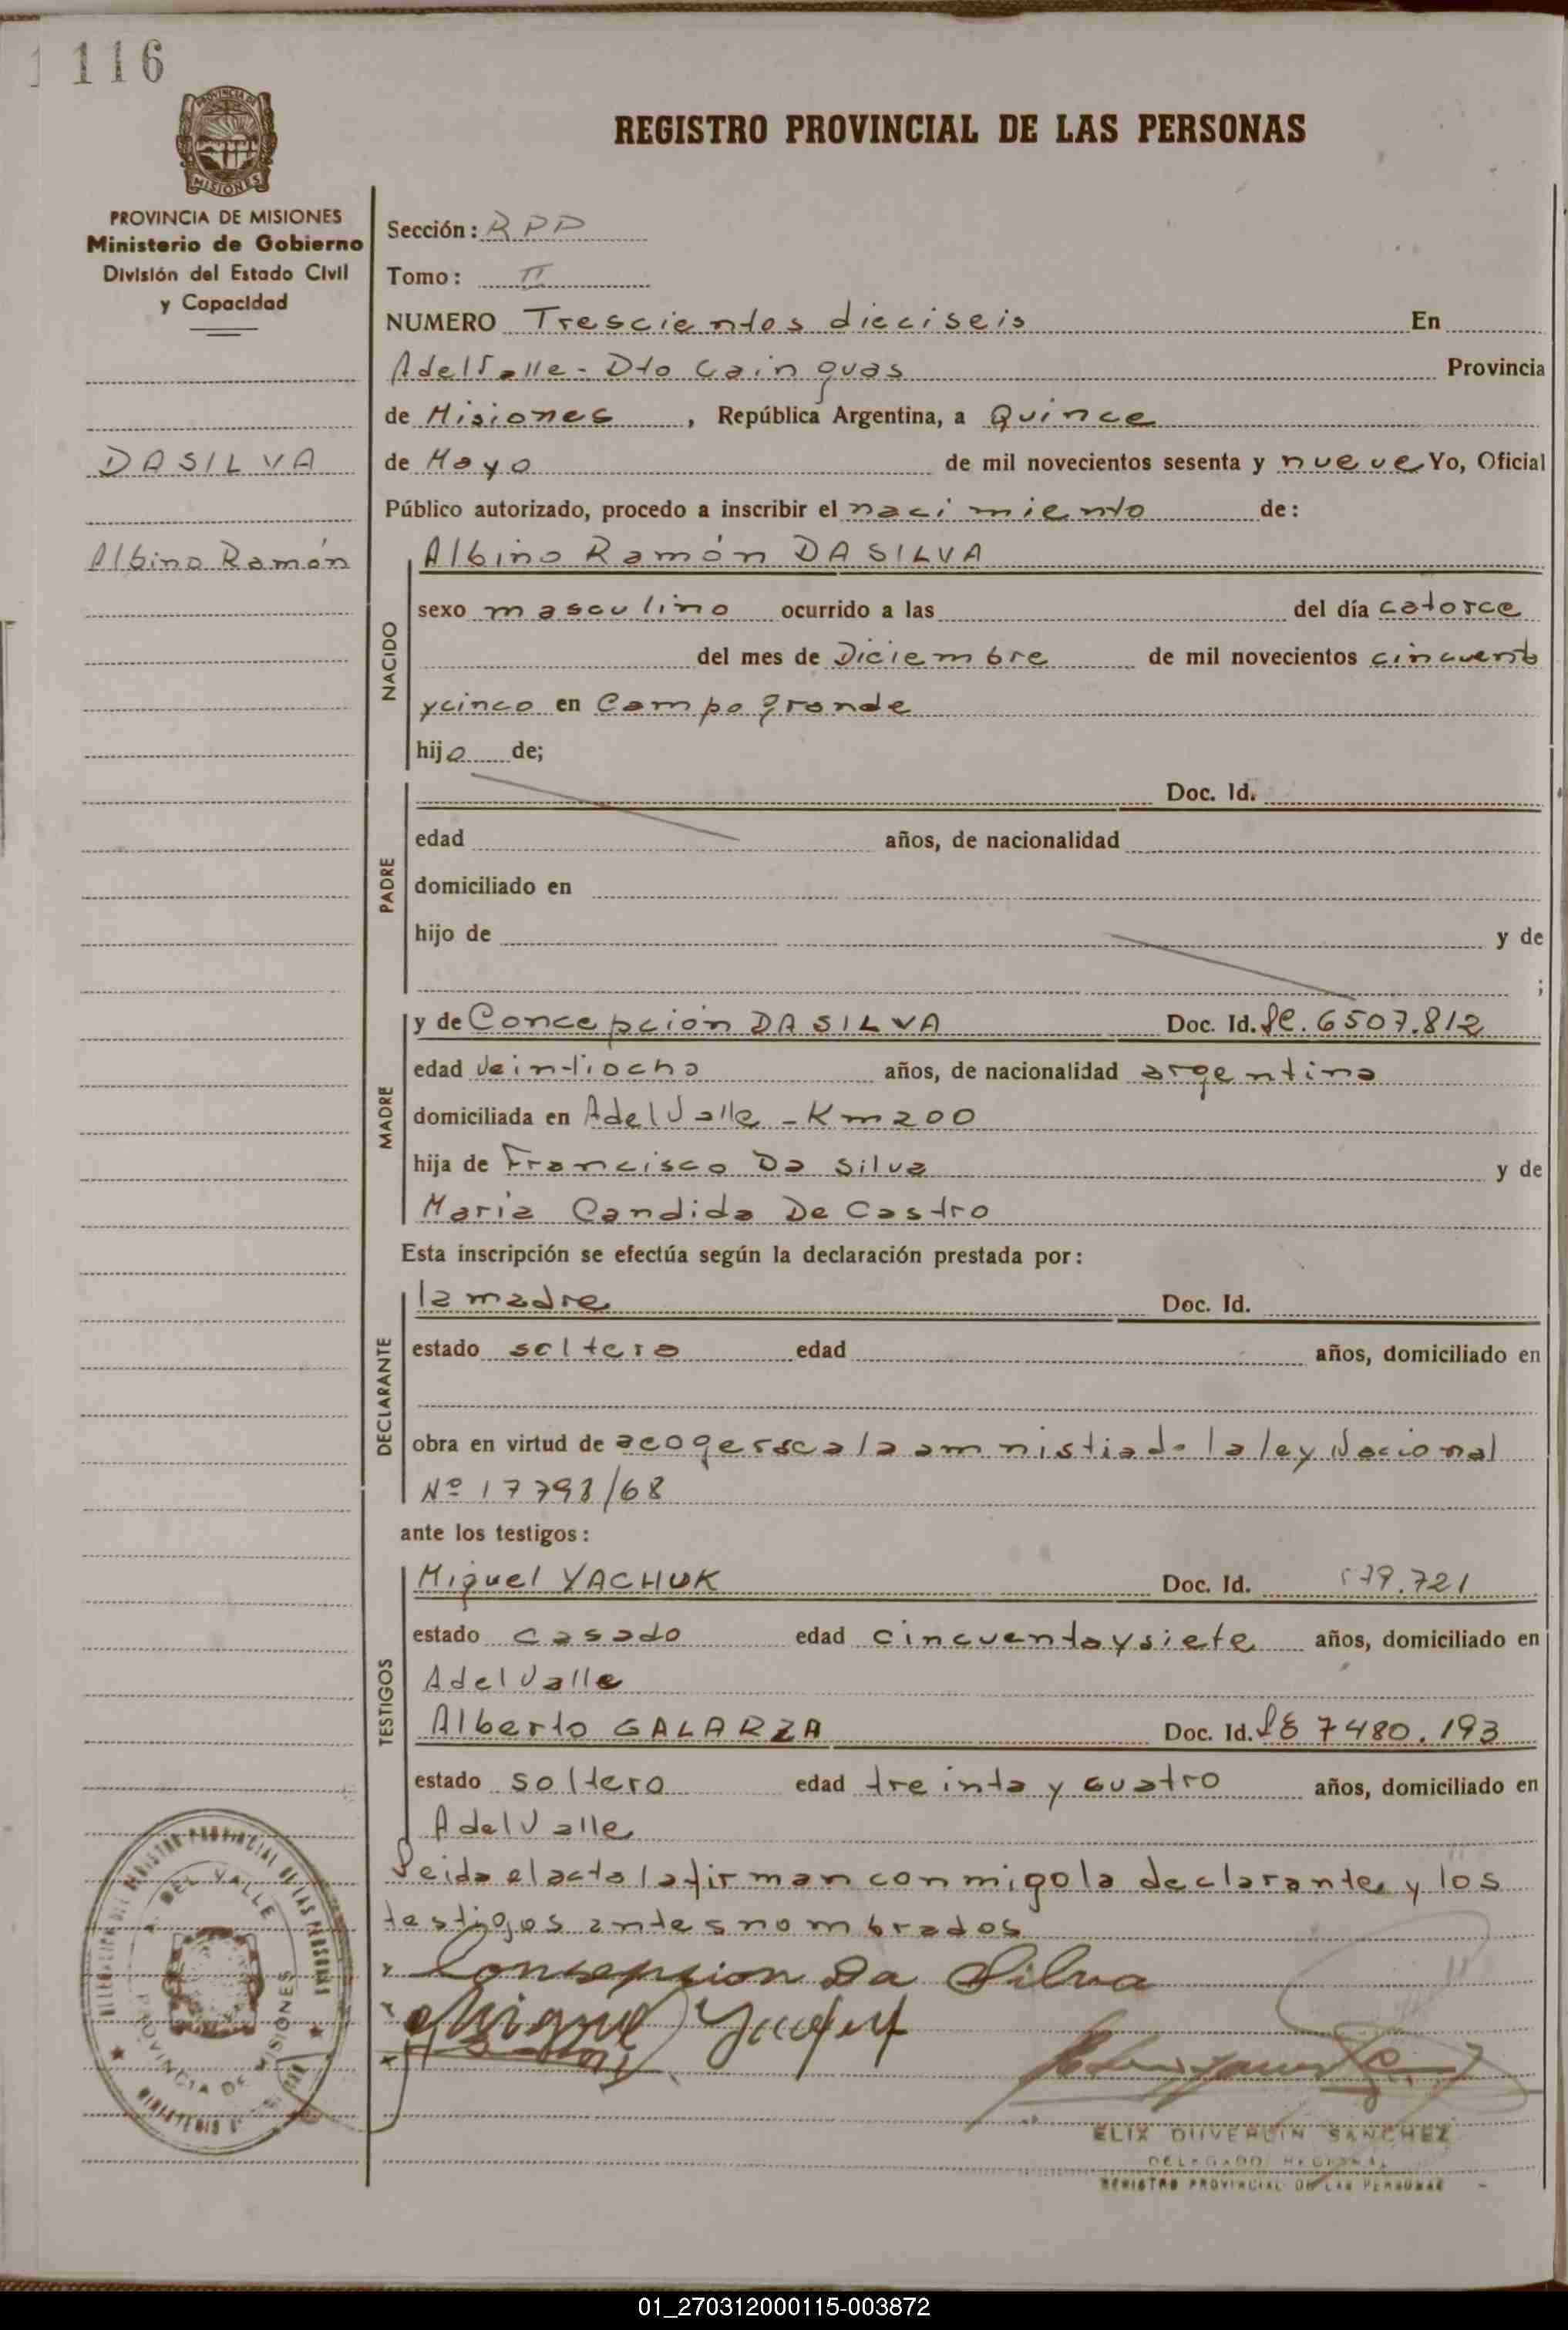 116
PROVINCIA DE
MISIONES
REGISTRO PROVINCIAL DE LAS PERSONAS
PROVINCIA DE MISIONES
Ministerio de Gobierno
División del Estado Civil
y Capacidad
DASILVA
Albino Ramón
Sección: RPP
Tomo: II
NUMERO Trescientos dieciseis En
AdelValle - Dto Cainguas Provincia
de Misiones, República Argentina, a Quince
de Mayo de mil novecientos sesenta y nueve Yo, Oficial
Público autorizado, procedo a inscribir el nacimiento de:
NACIDO
Albino Ramón DASILVA
sexo masculino ocurrido a las del día catorce
del mes de Diciembre de mil novecientos cincuenta
y cinco en Campo grande
hijo de;
PADRE
Doc. Id.
edad años, de nacionalidad
domiciliado en
hijo de y de
;
MADRE
y de Concepción DA SILVA Doc. Id. 6507.812
edad veintiocho años, de nacionalidad argentina
domiciliada en AdelValle - Km 200
hija de Francisco Da Silva y de
Maria Candida De Castro
Esta inscripción se efectúa según la declaración prestada por:
DECLARANTE
la madre Doc. Id.
estado soltera edad años, domiciliado en
obra en virtud de acogerse a la amnistia de la ley Nacional
Nº 17793/68
ante los testigos:
TESTIGOS
Miguel YACHUK Doc. Id. 579.721
estado casado edad cincuenta y siete años, domiciliado en
AdelValle
Alberto GALARZA Doc. Id. 7480.193
estado soltero edad treinta y cuatro años, domiciliado en
AdelValle
Leida el acta la firman conmigo la declarante y los
testigos antes nombrados
Consepsion Da Silva
Miguel
ELIX DUVERLIN SANCHEZ
DELEGADO REGIONAL
REGISTRO PROVINCIAL DE LAS PERSONAS
DEL REGISTRO PROVINCIAL DE LAS PERSONAS
A. DEL VALLE
PROVINCIA DE MISIONES
01_270312000115-003872